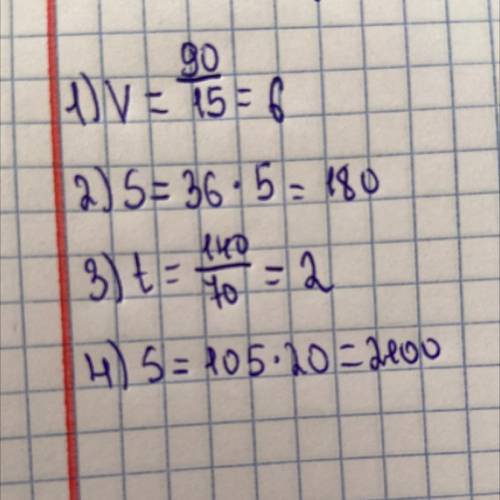 1) V = 90/15 = 6
2) S = 36 · 5 = 180
3) t = 140/70 = 2
4) S = 105 · 20 = 2100